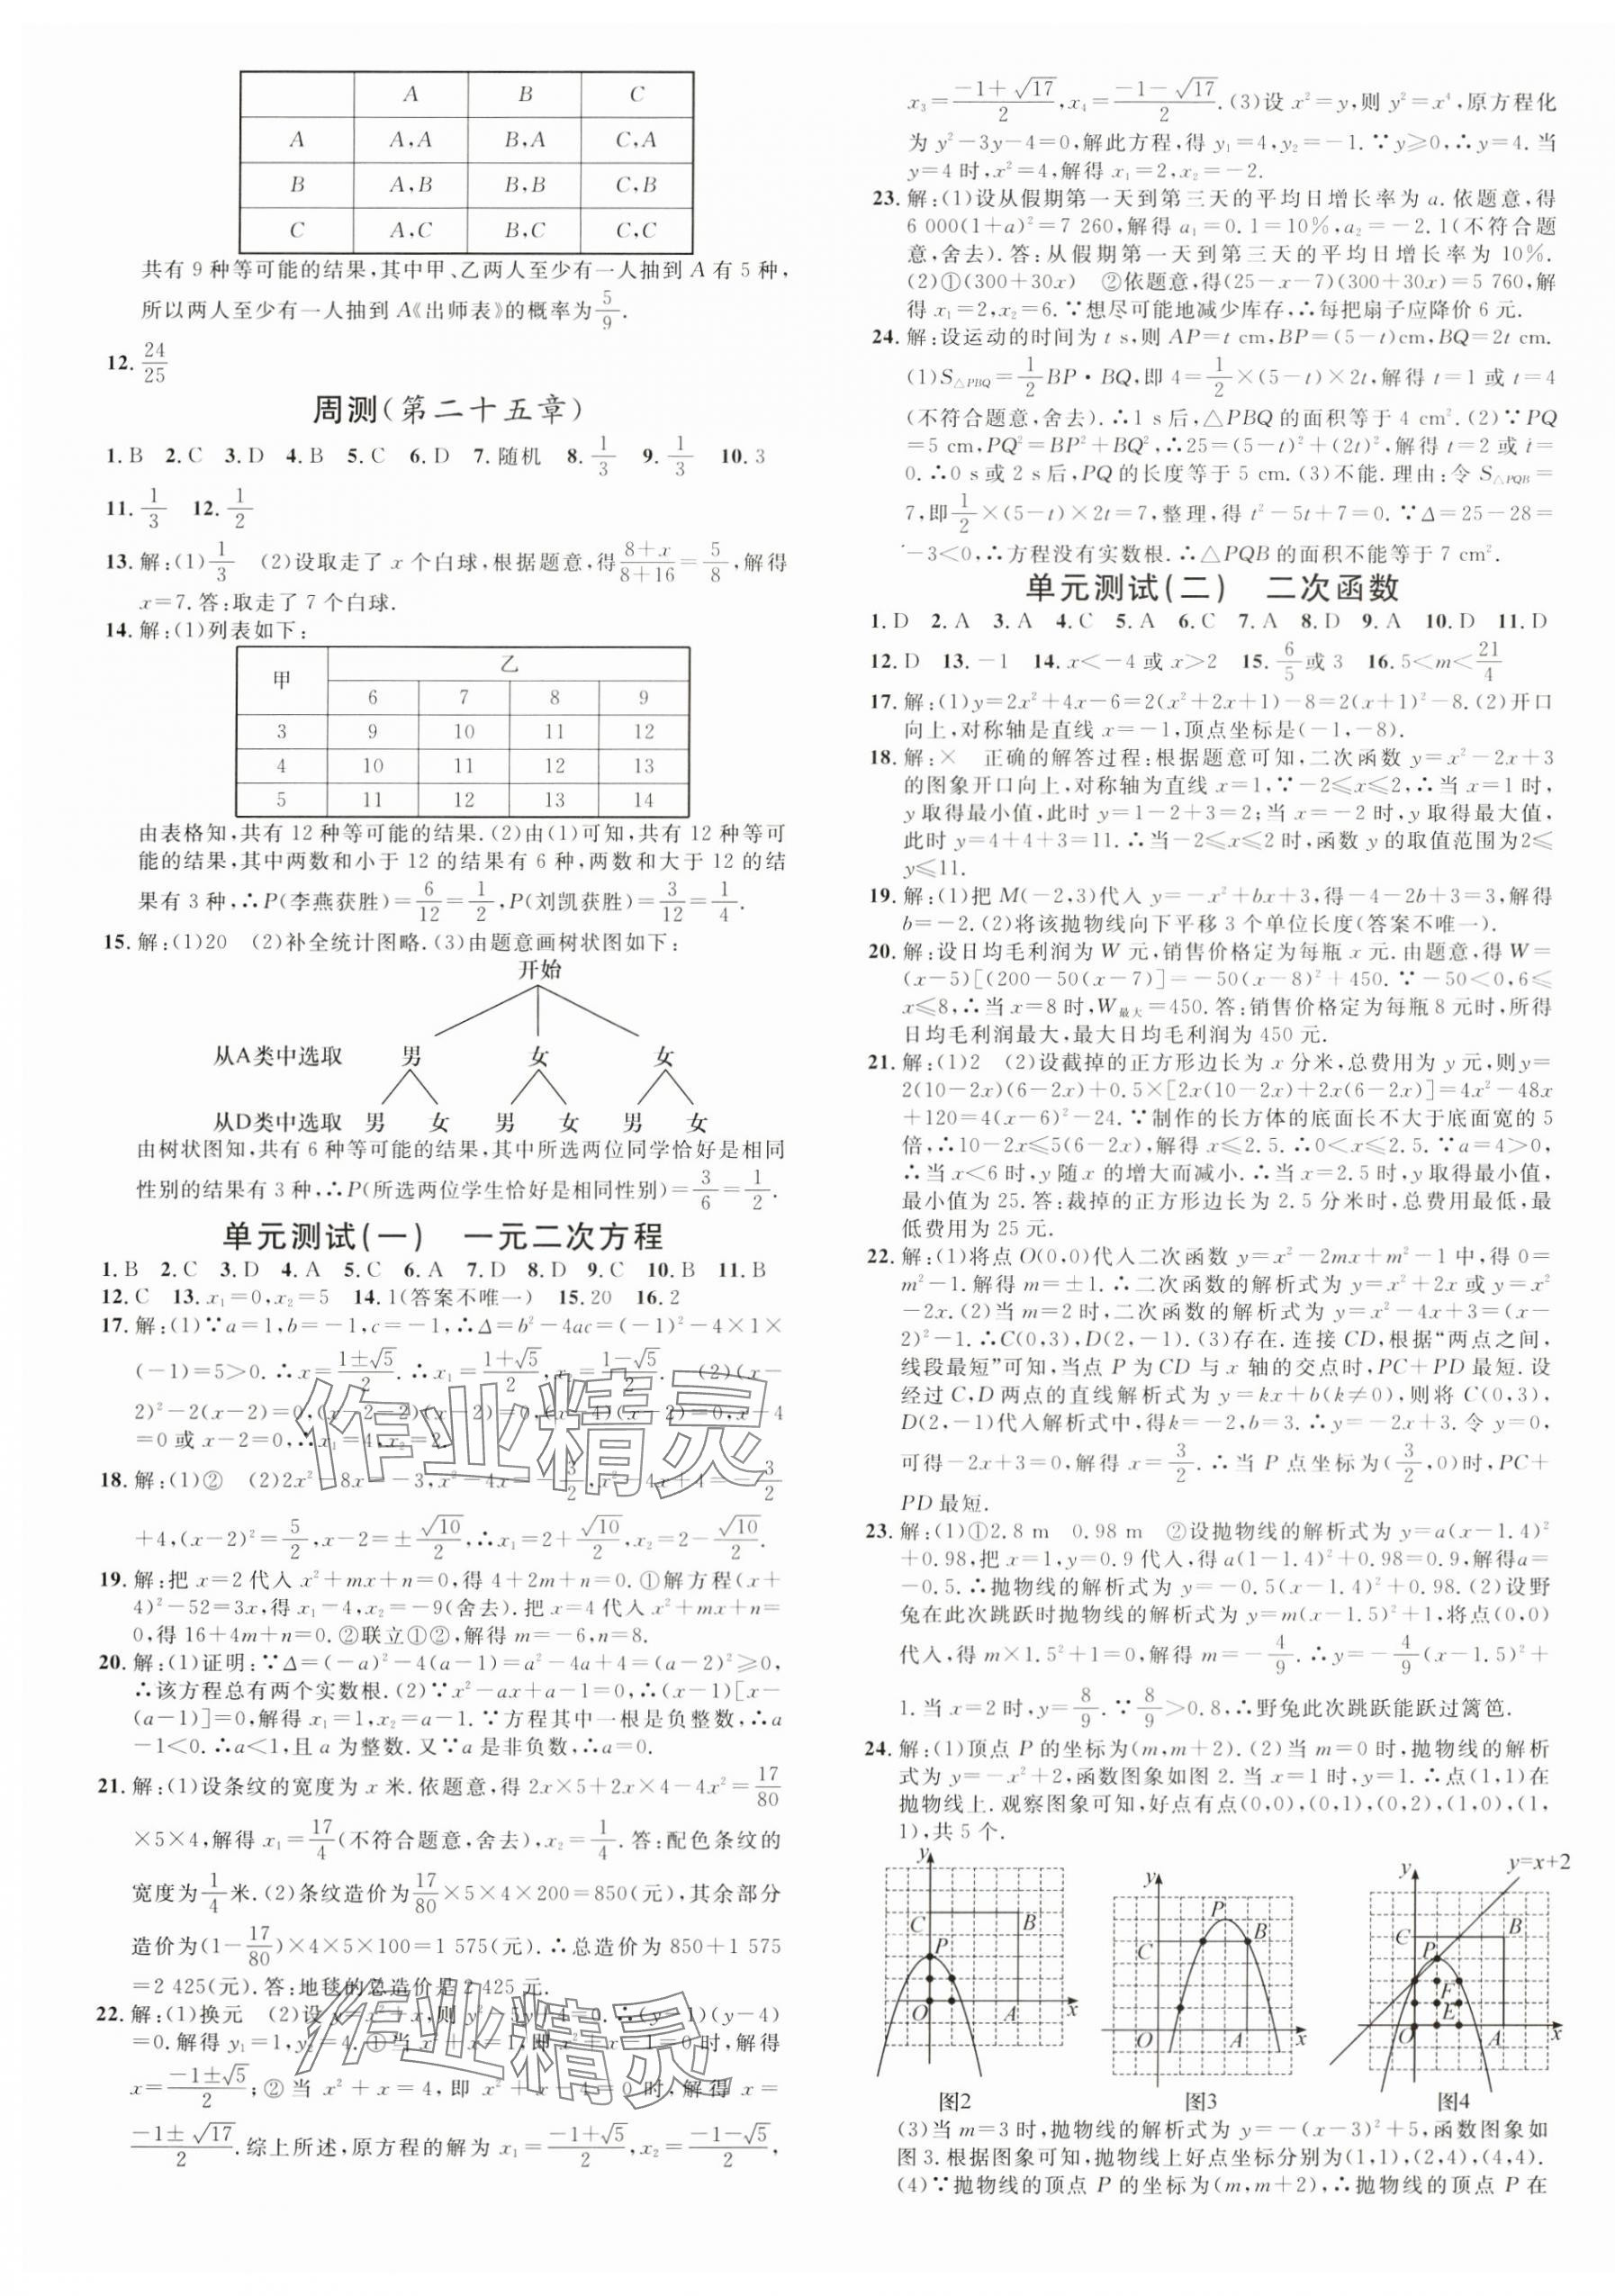 A B C
A A,A B,A C,A
B A,B B,B C,B
C A,C B,C C,C
共有 9 种等可能的结果,其中甲、乙两人至少有一人抽到 A 有 5 种,
所以两人至少有一人抽到 A《出师表》的概率为5/9.
12. 24/25
周测(第二十五章)
1. B 2. C 3. D 4. B 5. C 6. D 7. 随机 8. 1/3 9. 1/3 10. 3
11. 1/3 12. 1/2
13. 解:(1)1/3 (2)设取走了 x 个白球,根据题意,得(8+x)/(8+16)=5/8,解得
x=7. 答:取走了 7 个白球.
14. 解:(1)列表如下:
甲 乙
6 7 8 9
3 9 10 11 12
4 10 11 12 13
5 11 12 13 14
由表格知,共有 12 种等可能的结果. (2)由(1)可知,共有 12 种等可
能的结果,其中两数和小于 12 的结果有 6 种,两数和大于 12 的结
果有 3 种,∴P(李燕获胜)=6/12=1/2,P(刘凯获胜)=3/12=1/4.
15. 解:(1)20 (2)补全统计图略. (3)由题意画树状图如下:
开始
从A类中选取 男 女 女
从D类中选取 男 女 男 女 男 女
由树状图知,共有 6 种等可能的结果,其中所选两位同学恰好是相同
性别的结果有 3 种,∴P(所选两位学生恰好是相同性别)=3/6=1/2.
单元测试(一) 一元二次方程
1. B 2. C 3. D 4. A 5. C 6. A 7. D 8. D 9. C 10. B 11. B
12. C 13. x₁=0,x₂=5 14. 1(答案不唯一) 15. 20 16. 2
17. 解:(1)∵a=1,b=-1,c=-1,∴Δ=b²-4ac=(-1)²-4×1×
(-1)=5>0. ∴x=(1±√5)/2. ∴x₁=(1+√5)/2,x₂=(1-√5)/2. (2)(x-
2)²-2(x-2)=0,(x-2-2)(x-2)=0,(x-4)(x-2)=0,x-4
=0 或 x-2=0,∴x₁=4,x₂=2.
18. 解:(1)② (2)2x²-8x=-3,x²-4x=-3/2,x²-4x+4=-3/2
+4,(x-2)²=5/2,x-2=±√10/2,∴x₁=2+√10/2,x₂=2-√10/2.
19. 解:把 x=2 代入 x²+mx+n=0,得 4+2m+n=0. ①解方程(x+
4)²-52=3x,得 x₁=4,x₂=-9(舍去). 把 x=4 代入 x²+mx+n=
0,得 16+4m+n=0. ②联立①②,解得 m=-6,n=8.
20. 解:(1)证明:∵Δ=(-a)²-4(a-1)=a²-4a+4=(a-2)²≥0,
∴该方程总有两个实数根. (2)∵x²-ax+a-1=0,∴(x-1)[x-
(a-1)]=0,解得 x₁=1,x₂=a-1. ∵方程其中一根是负整数,∴a
-1<0. ∴a<1,且 a 为整数. 又∵a 是非负数,∴a=0.
21. 解:(1)设条纹的宽度为 x 米. 依题意,得 2x×5+2x×4-4x²=17/80
×5×4,解得 x₁=17/4(不符合题意,舍去),x₂=1/4. 答:配色条纹的
宽度为1/4米. (2)条纹造价为17/80×5×4×200=850(元),其余部分
造价为(1-17/80)×4×5×100=1 575(元). ∴总造价为 850+1 575
=2 425(元). 答:地毯的总造价是 2 425 元.
22. 解:(1)换元 (2)设 y=x²+x,则 y²-5y+4=0. ∴(y-1)(y-4)
=0. 解得 y₁=1,y₂=4. ①当 x²+x=1,即 x²+x-1=0 时,解得
x=(-1±√5)/2;②当 x²+x=4,即 x²+x-4=0 时,解得 x=
(-1±√17)/2. 综上所述,原方程的解为 x₁=(-1+√5)/2,x₂=(-1-√5)/2,
x₃=(-1+√17)/2,x₄=(-1-√17)/2. (3)设 x²=y,则 y²=x⁴,原方程化
为 y²-3y-4=0,解此方程,得 y₁=4,y₂=-1. ∵y≥0,∴y=4. 当
y=4 时,x²=4,解得 x₁=2,x₂=-2.
23. 解:(1)设从假期第一天到第三天的平均日增长率为 a. 依题意,得
6 000(1+a)²=7 260,解得 a₁=0.1=10%,a₂=-2.1(不符合题
意,舍去). 答:从假期第一天到第三天的平均日增长率为 10%.
(2)①(300+30x) ②依题意,得(25-x-7)(300+30x)=5 760,解
得 x₁=2,x₂=6. ∵想尽可能地减少库存,∴每把扇子应降价 6 元.
24. 解:设运动的时间为 t s,则 AP=t cm,BP=(5-t)cm,BQ=2t cm.
(1)S△PBQ=1/2BP·BQ,即 4=1/2×(5-t)×2t,解得 t=1 或 t=4
(不符合题意,舍去). ∴1 s 后,△PBQ 的面积等于 4 cm². (2)∵PQ
=5 cm,PQ²=BP²+BQ²,∴25=(5-t)²+(2t)²,解得 t=2 或 t=
0. ∴0 s 或 2 s 后,PQ 的长度等于 5 cm. (3)不能. 理由:令 S△PQB=
7,即1/2×(5-t)×2t=7,整理,得 t²-5t+7=0. ∵Δ=25-28=
-3<0,∴方程没有实数根. ∴△PQB 的面积不能等于 7 cm².
单元测试(二) 二次函数
1. D 2. A 3. A 4. C 5. A 6. C 7. A 8. D 9. A 10. D 11. D
12. D 13. -1 14. x<-4 或 x>2 15. 6/5或 3 16. 5<m<21/4
17. 解:(1)y=2x²+4x-6=2(x²+2x+1)-8=2(x+1)²-8. (2)开口
向上,对称轴是直线 x=-1,顶点坐标是(-1,-8).
18. 解:× 正确的解答过程:根据题意可知,二次函数 y=x²-2x+3
的图象开口向上,对称轴为直线 x=1,∵-2≤x≤2,∴当 x=1 时,
y 取得最小值,此时 y=1-2+3=2;当 x=-2 时,y 取得最大值,
此时 y=4+4+3=11. ∴当-2≤x≤2 时,函数 y 的取值范围为2≤
y≤11.
19. 解:(1)把 M(-2,3)代入 y=-x²+bx+3,得-4-2b+3=3,解得
b=-2. (2)将该抛物线向下平移 3 个单位长度(答案不唯一).
20. 解:设日均毛利润为 W 元,销售价格定为每瓶 x 元. 由题意,得 W=
(x-5)[(200-50(x-7)]=-50(x-8)²+450. ∵-50<0,6≤
x≤8,∴当 x=8 时,W最大=450. 答:销售价格定为每瓶 8 元时,所得
日均毛利润最大,最大日均毛利润为 450 元.
21. 解:(1)2 (2)设截掉的正方形边长为 x 分米,总费用为 y 元,则y=
2(10-2x)(6-2x)+0.5×[2x(10-2x)+2x(6-2x)]=4x²-48x
+120=4(x-6)²-24. ∵制作的长方体的底面长不大于底面宽的 5
倍,∴10-2x≤5(6-2x),解得 x≤2.5. ∴0<x≤2.5. ∵a=4>0,
∴当 x<6 时,y 随 x 的增大而减小. ∴当 x=2.5 时,y 取得最小值,
最小值为 25. 答:裁掉的正方形边长为 2.5 分米时,总费用最低,最
低费用为 25 元.
22. 解:(1)将点 O(0,0)代入二次函数 y=x²-2mx+m²-1 中,得 0=
m²-1. 解得 m=±1. ∴二次函数的解析式为 y=x²+2x 或 y=x²
-2x. (2)当 m=2 时,二次函数的解析式为 y=x²-4x+3=(x-
2)²-1. ∴C(0,3),D(2,-1). (3)存在. 连接 CD,根据“两点之间,
线段最短”可知,当点 P 为 CD 与 x 轴的交点时,PC+PD 最短. 设
经过 C,D 两点的直线解析式为 y=kx+b(k≠0),则将 C(0,3),
D(2,-1)代入解析式中,得k=-2,b=3. ∴y=-2x+3. 令 y=0,
可得-2x+3=0,解得 x=3/2. ∴当 P 点坐标为(3/2,0)时,PC+
PD 最短.
23. 解:(1)①2.8 m 0.98 m ②设抛物线的解析式为 y=a(x-1.4)²
+0.98,把 x=1,y=0.9 代入,得 a(1-1.4)²+0.98=0.9,解得a=
-0.5. ∴抛物线的解析式为 y=-0.5(x-1.4)²+0.98. (2)设野
兔在此次跳跃时抛物线的解析式为 y=m(x-1.5)²+1,将点(0,0)
代入,得 m×1.5²+1=0,解得 m=-4/9. ∴y=-4/9(x-1.5)²+
1. 当 x=2 时,y=8/9. ∵8/9>0.8,∴野兔此次跳跃能跃过篱笆.
24. 解:(1)顶点 P 的坐标为(m,m+2). (2)当 m=0 时,抛物线的解析
式为 y=-x²+2,函数图象如图 2. 当 x=1 时,y=1. ∴点(1,1)在
抛物线上. 观察图象可知,好点有点(0,0),(0,1),(0,2),(1,0),(1,
1),共 5 个.
y C B P O A x
图2
y P C B O A x
图3
y y=x+2 C B P F E O A x
图4
(3)当 m=3 时,抛物线的解析式为 y=-(x-3)²+5,函数图象如
图 3. 根据图象可知,抛物线上好点坐标分别为(1,1),(2,4),(4,4).
(4)∵抛物线的顶点 P 的坐标为(m,m+2),∴抛物线的顶点 P 在
作业精灵
作业精灵